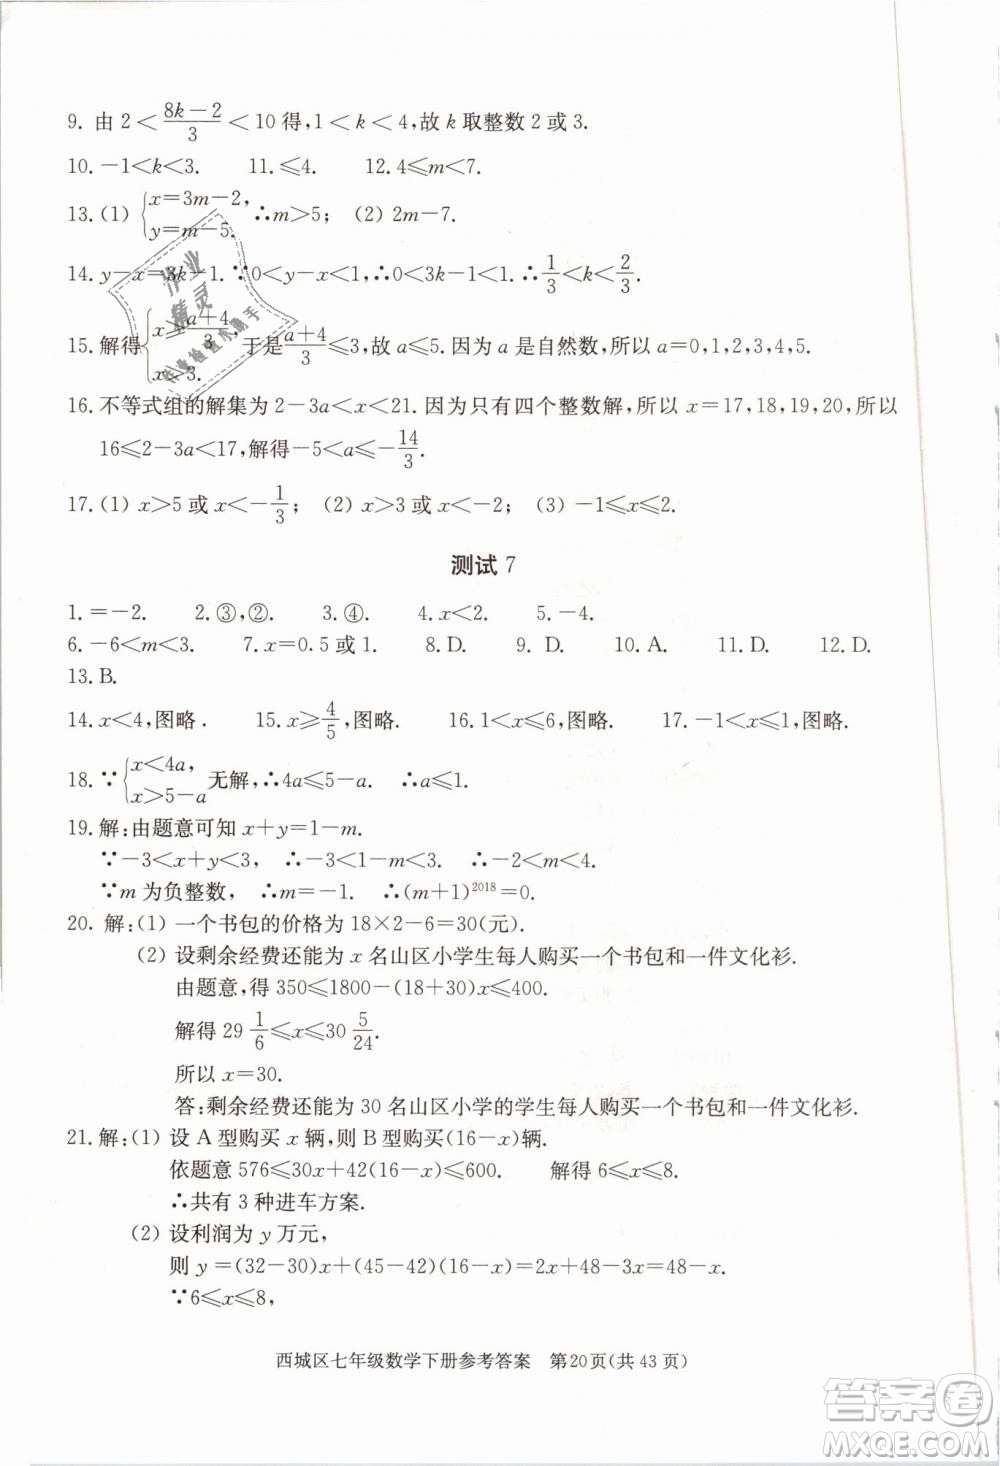 9. 由 2＜(8k－2)/3＜10 得,1＜k＜4,故 k 取整数 2 或 3.
10. －1＜k＜3.　11. ≤4.　12. 4≤m＜7.
13. (1) {x＝3m－2, y＝m－5. ∴m＞5; (2) 2m－7.
14. y－x＝3k－1. ∵0＜y－x＜1,∴0＜3k－1＜1. ∴1/3＜k＜2/3.
15. 解得{x≥(a＋4)/3, x≥3. 于是(a＋4)/3≤3,故 a≤5. 因为 a 是自然数,所以 a＝0,1,2,3,4,5.
16. 不等式组的解集为 2－3a＜x＜21. 因为只有四个整数解,所以 x＝17,18,19,20,所以
16≤2－3a＜17,解得－5＜a≤－14/3.
17. (1) x＞5 或 x＜－1/3; (2) x＞3 或 x＜－2; (3) －1≤x≤2.
测试 7
1. ＝－2.　2. ③,②.　3. ④.　4. x＜2.　5. －4.
6. －6＜m＜3.　7. x＝0.5 或 1.　8. D.　9. D.　10. A.　11. D.　12. D.
13. B.
14. x＜4,图略.　15. x≥4/5,图略.　16. 1＜x≤6,图略.　17. －1＜x≤1,图略.
18. ∵{x＜4a, x＞5－a 无解,∴4a≤5－a.　∴a≤1.
19. 解:由题意可知 x＋y＝1－m.
∵－3＜x＋y＜3,　∴－3＜1－m＜3.　∴－2＜m＜4.
∵m 为负整数,　∴m＝－1.　∴(m＋1)²⁰¹⁸＝0.
20. 解:(1) 一个书包的价格为 18×2－6＝30(元).
(2) 设剩余经费还能为 x 名山区小学生每人购买一个书包和一件文化衫.
由题意,得 350≤1800－(18＋30)x≤400.
解得 29 1/6≤x≤30 5/24.
所以 x＝30.
答:剩余经费还能为 30 名山区小学的学生每人购买一个书包和一件文化衫.
21. 解:(1) 设 A 型购买 x 辆,则 B 型购买(16－x)辆.
依题意 576≤30x＋42(16－x)≤600.　解得 6≤x≤8.
∴共有 3 种进车方案.
(2) 设利润为 y 万元,
则 y＝(32－30)x＋(45－42)(16－x)＝2x＋48－3x＝48－x.
∵6≤x≤8,
西城区七年级数学下册参考答案　第20页(共 43 页)
作业
精灵
作业检查小助手
答案卷
MXQE.COM